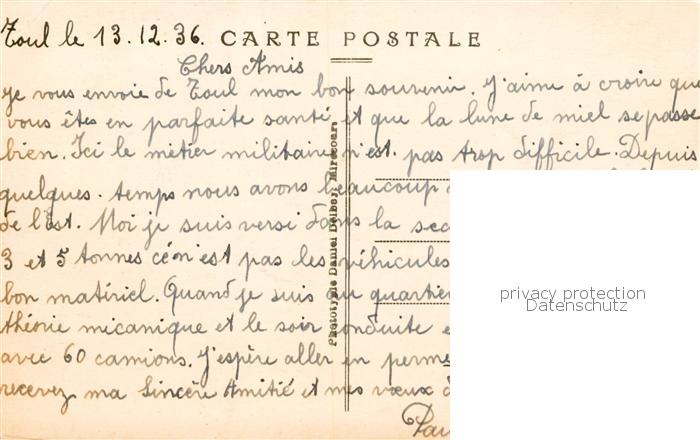 Toul le 13.12.36. CARTE POSTALE
Chers Amis
Je vous envoie de Toul mon bon souvenir. J'aime à croire que
vous êtes en parfaite santé, et que la lune de miel se passe
bien. Ici le métier militaire n'est pas trop difficile. Depuis
quelques temps nous avons beaucoup
de l'est. Moi je suis versi dans la sec
3 et 5 tonnes ce n'est pas les véhicules
bon matériel. Quand je suis au quartier
théorie mécanique et le soir conduite
avec 60 camions. J'espère aller en perme
recevez ma Sincère Amitié et mes vœux
Phototypie Daniel Delboy, Mirecourt
privacy protection
Datenschutz